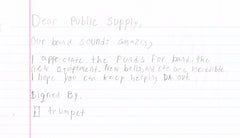 Dear Public Supply,
Our band sounds amazing
I appreciate the funds for band, the
new equipment, New bells, music etc are incredible
I hope you can keep helping DA out
Signed By,
trumpet